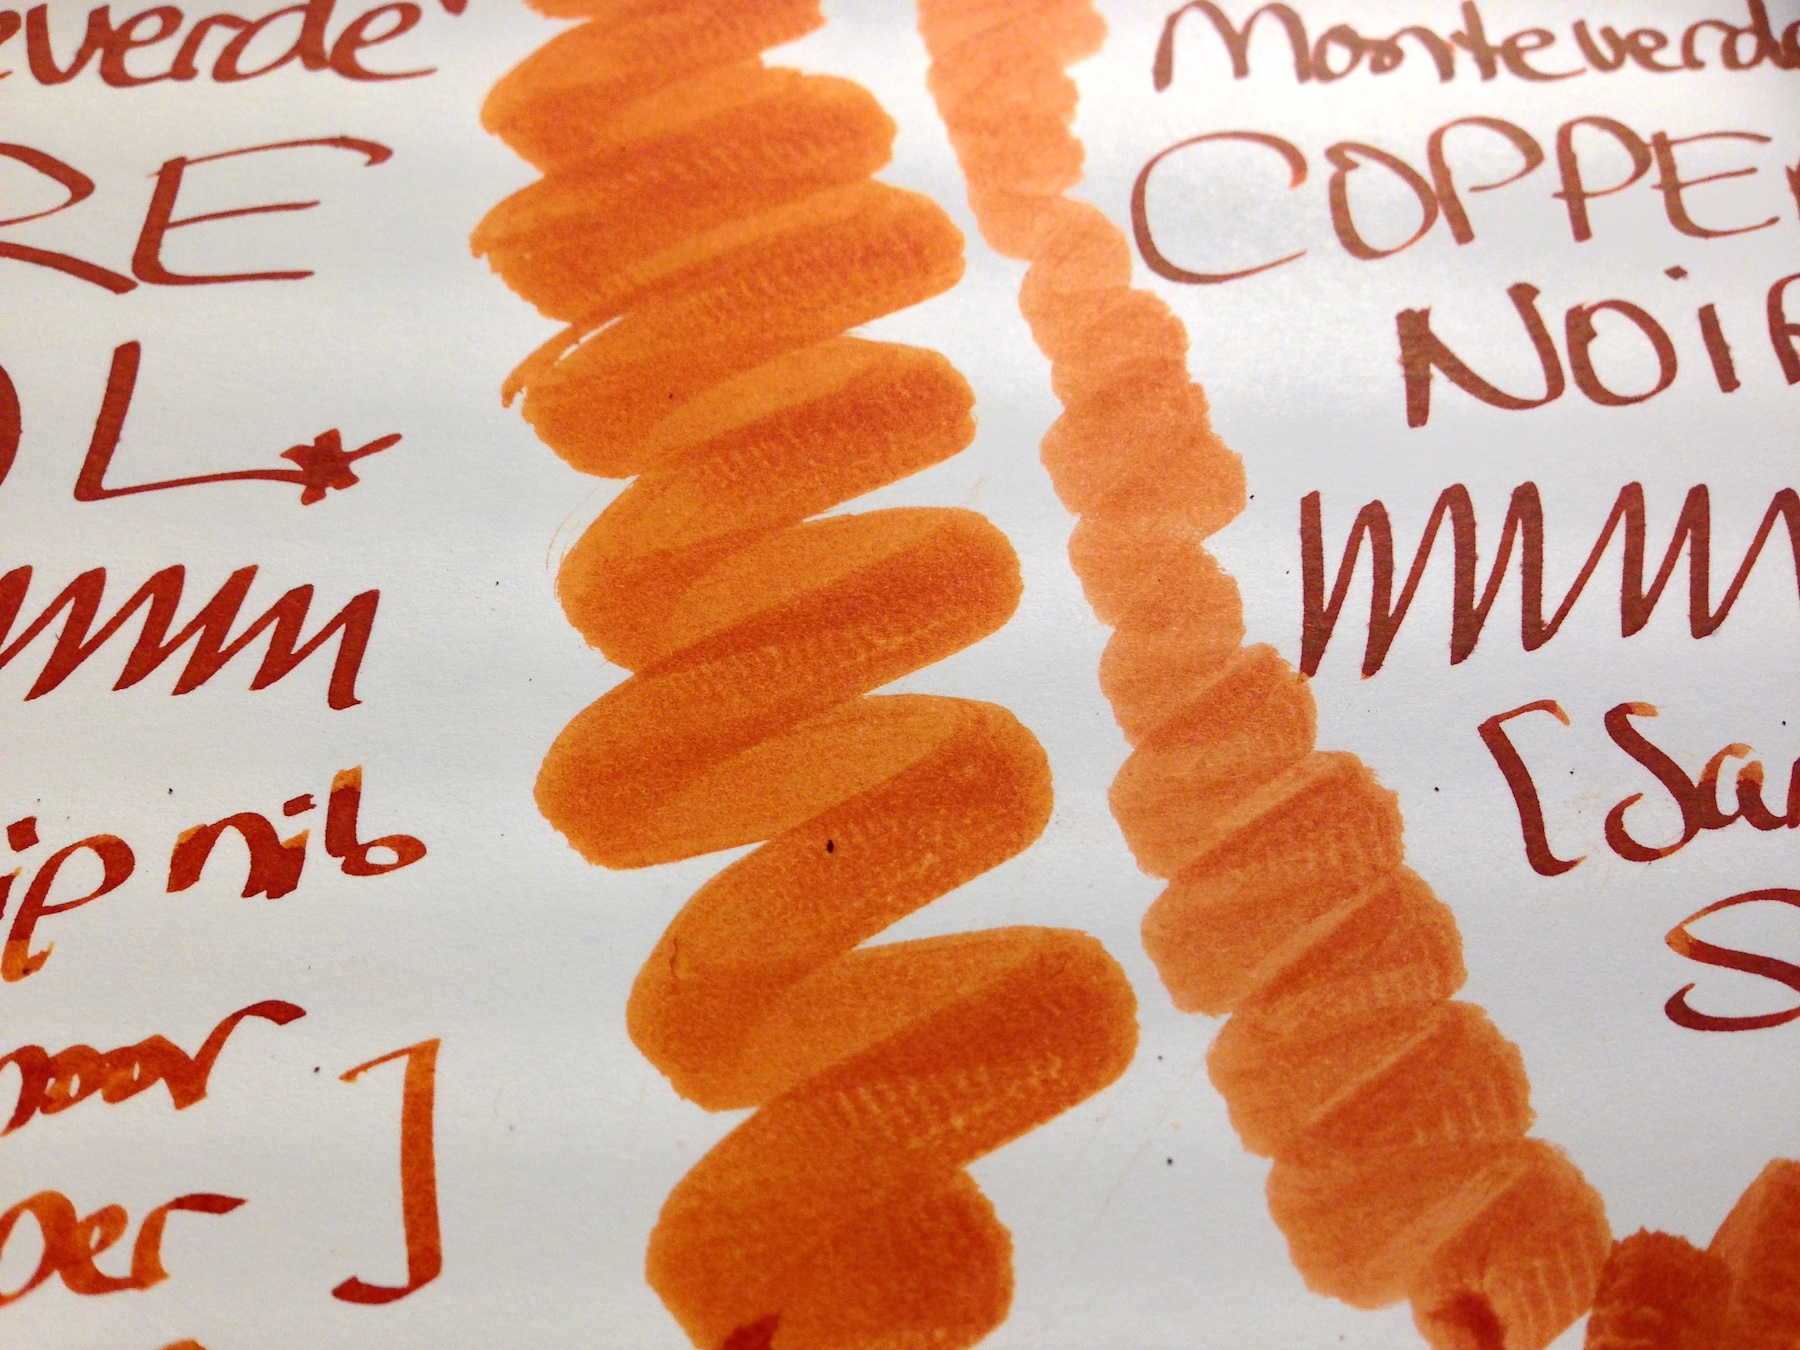 everde
RE
L*
ip nib
oor
per ]
Monteverde
COPPER
NOIR
[Sai
S